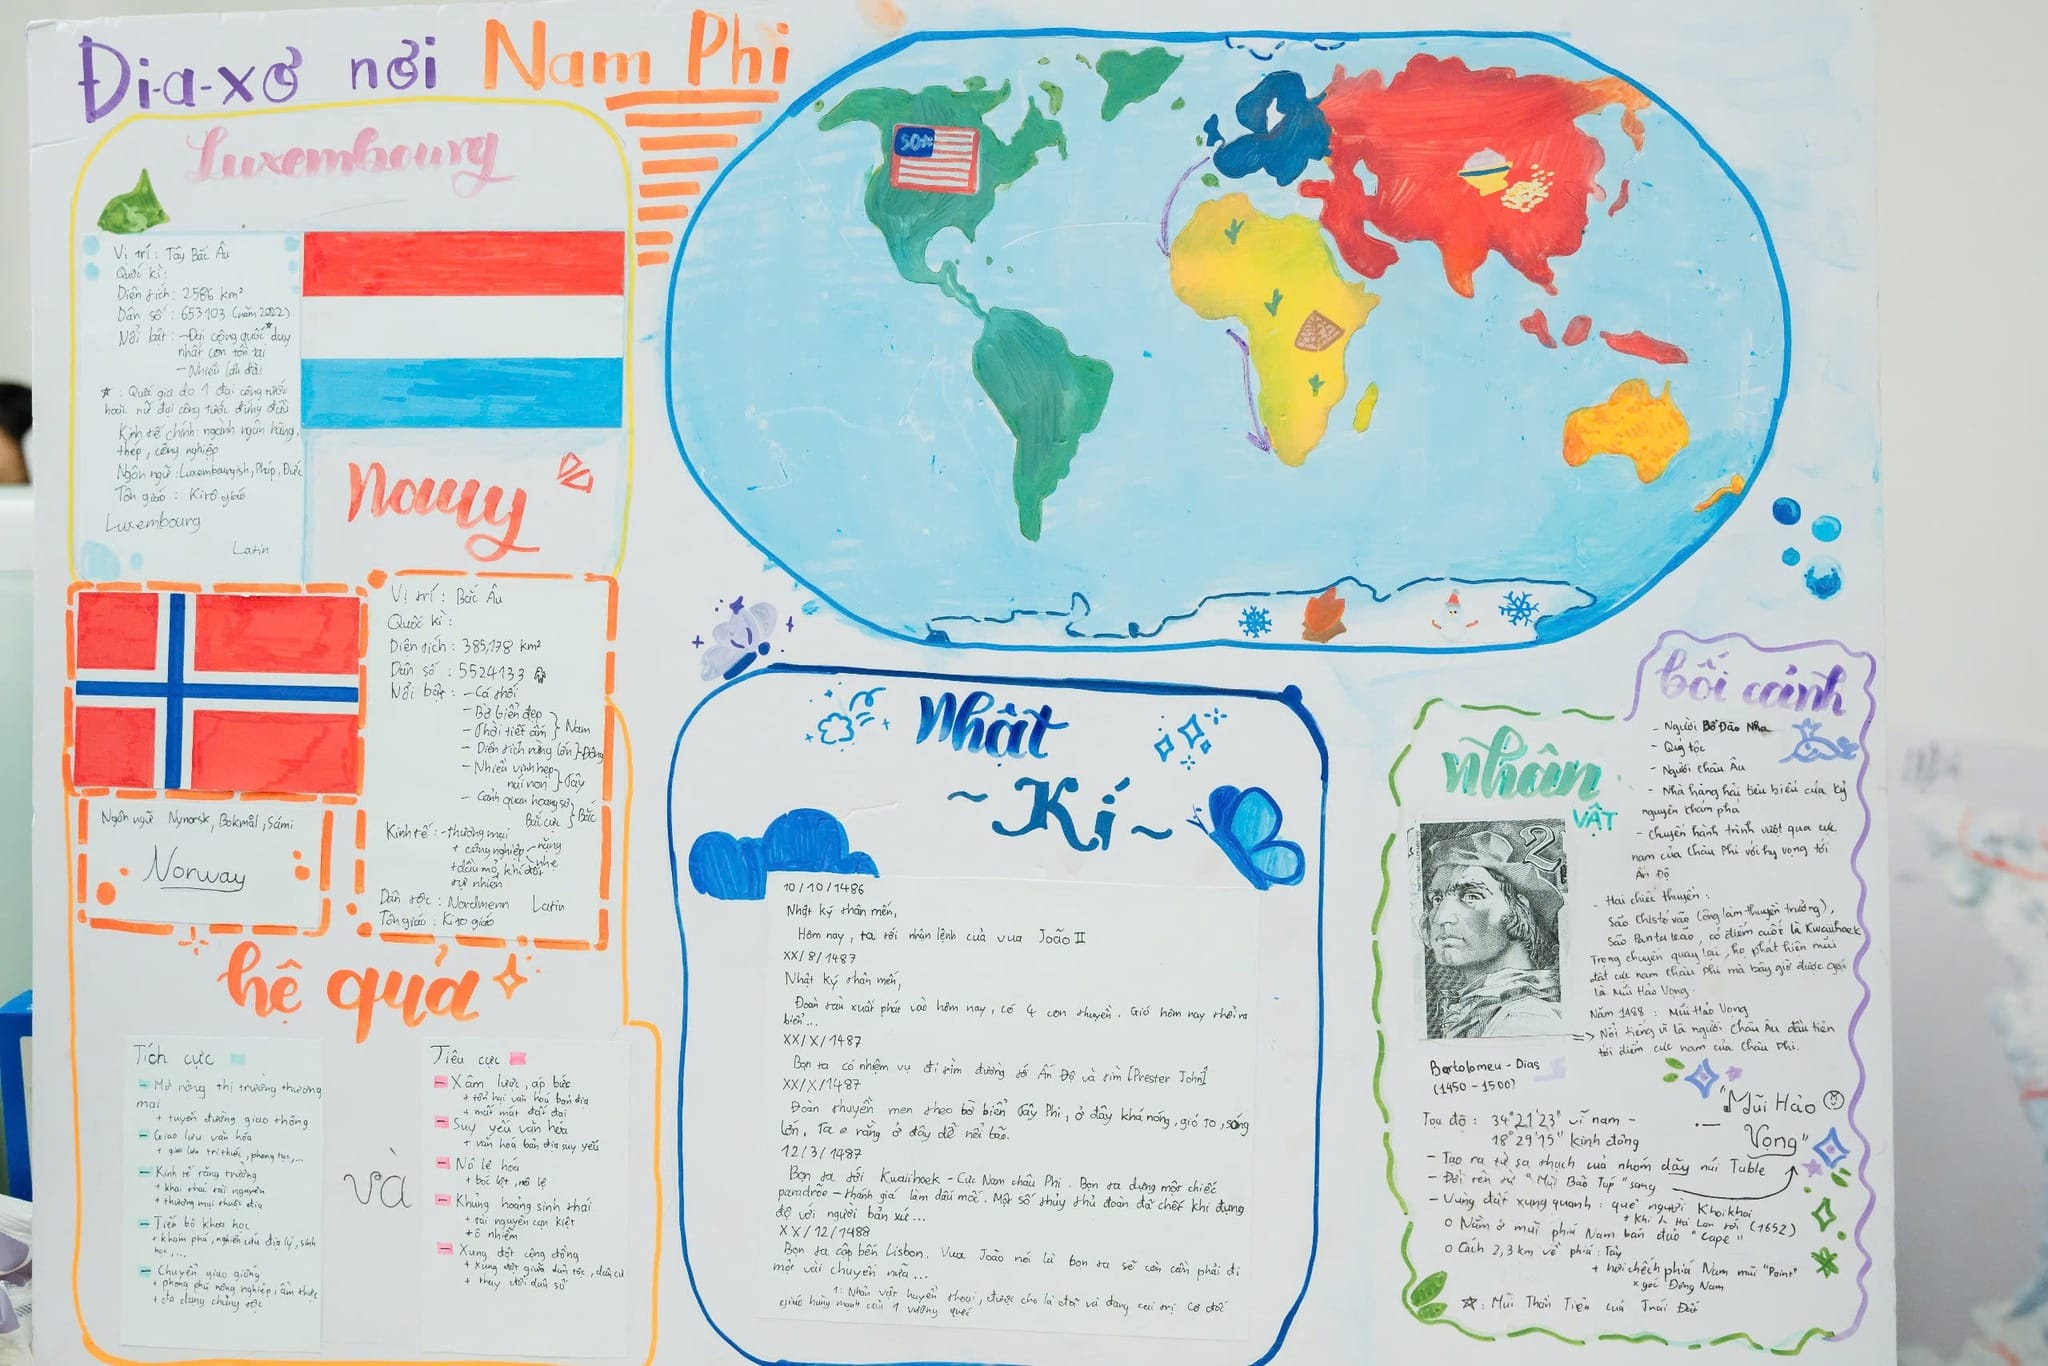 Đi-a-xơ nơi Nam Phi
Luxembourg
Vị trí: Tây Bắc Âu
Quốc kì:
Diện tích: 2586 km²
Dân số: 653103 (năm 2022)
Nổi bật: - Đại công quốc* duy
nhất còn tồn tại
- Nhiều lâu đài
*: Quốc gia do 1 đại công tước
hoặc nữ đại công tước đứng đầu
Kinh tế chính: ngành ngân hàng,
thép, công nghiệp
Ngôn ngữ: Luxembourgish, Pháp, Đức
Tôn giáo: Kitô giáo
Luxembourg
Latin
Nauy
Vị trí: Bắc Âu
Quốc kì:
Diện tích: 385,178 km²
Dân số: 5524133
Nổi bật: - Cá thối
- Bờ biển đẹp
- Thời tiết ấm } Nam
- Diện tích rừng lớn } Đông
- Nhiều vịnh hẹp
núi non } Tây
- Cảnh quan hoang sơ
Bắc cực } Bắc
Kinh tế: - thương mại
+ công nghiệp nặng
nhẹ
+ dầu mỏ, khí đốt
tự nhiên
Dân tộc: Nordmenn Latin
Tôn giáo: Kitô giáo
Ngôn ngữ Nynorsk, Bokmål, Sámi
Norway
hệ quả
Tích cực
- Mở rộng thị trường thương
mại
+ tuyến đường giao thông
- Giao lưu văn hóa
+ giao lưu tri thức, phong tục,...
- Kinh tế tăng trưởng
+ khai thác tài nguyên
+ thương mại thuộc địa
- Tiến bộ khoa học
+ khám phá, nghiên cứu địa lý, sinh
học,...
- Chuyển giao giống
+ phong phú nông nghiệp, ẩm thực
+ đa dạng chủng tộc
và
Tiêu cực
- Xâm lược, áp bức
+ tổn hại văn hoá bản địa
+ mất mát đất đai
- Suy yếu văn hóa
+ văn hóa bản địa suy yếu
- Nô lệ hóa
+ bóc lột, nô lệ
- Khủng hoảng sinh thái
+ tài nguyên cạn kiệt
+ ô nhiễm
- Xung đột cộng đồng
+ xung đột giữa dân tộc, dân cư
+ thay đổi dân số
Nhật
~ Kí ~
10/10/1486
Nhật ký thân mến,
Hôm nay, ta tới nhận lệnh của vua João II
XX/8/1487
Nhật ký thân mến,
Đoàn ta xuất phát vào hôm nay, có 4 con thuyền. Gió hôm nay thổi ra
biển...
XX/X/1487
Bọn ta có nhiệm vụ đi tìm đường tới Ấn Độ và tìm [Prester John]
XX/X/1487
Đoàn thuyền men theo bờ biển Tây Phi, ở đây khá nóng, gió to, sóng
lớn. Ta e rằng ở đây dễ nổi bão.
12/3/1487
Bọn ta tới Kwaiihoek - Cực Nam châu Phi. Bọn ta dựng một chiếc
paradrõe - thánh giá làm dấu mốc. Một số thủy thủ đoàn đã chết khi đụng
độ với người bản xứ...
XX/12/1488
Bọn ta cập bến Lisbon. Vua João nói là bọn ta sẽ còn cần phải đi
một vài chuyến nữa...
1: Nhân vật huyền thoại, được cho là đã và đang cai trị Cơ đốc
giáo hùng mạnh của 1 vương quốc
bối cảnh
Nhân
VẬT
- Người Bồ Đào Nha
- Quý tộc
- Người châu Âu
- Nhà hàng hải tiêu biểu của kỷ
nguyên khám phá
- Chuyến hành trình vượt qua cực
nam của Châu Phi với hy vọng tới
Ấn Độ
- Hai chiếc thuyền:
São Cristóvão (ông làm thuyền trưởng),
São Pantaleão, có điểm cuối là Kwaiihoek
Trong chuyến quay lại, họ phát hiện mũi
đất cực nam Châu Phi mà bây giờ được gọi
là Mũi Hảo Vọng.
Năm 1488: Mũi Hảo Vọng
=> Nổi tiếng vì là người Châu Âu đầu tiên
tới điểm cực nam của Châu Phi.
2
Bartolomeu - Dias
(1450 - 1500)
"Mũi Hảo
Vọng"
Tọa độ: 34°21'23" vĩ nam -
18°29'15" kinh đông
- Tạo ra từ sa thạch của nhóm dãy núi Table
- Đổi tên từ "Mũi Bão Táp" sang
- Vùng đất xung quanh: quê người Khoikhoi
+ Khi Hà Lan tới (1652)
o Nằm ở mũi phía Nam bán đảo "Cape"
o Cách 2,3 km về phía: Tây
+ hơi chếch phía Nam mũi "Point"
x góc Đông Nam
*: Mũi Thần Tiên của Trái Đất